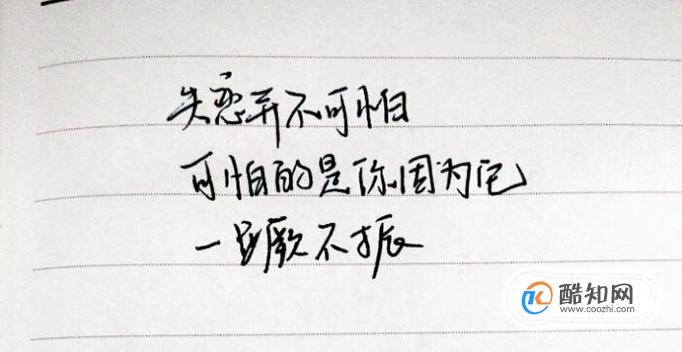 失恋并不可怕
可怕的是你因为它
一蹶不振
酷知网
www.coozhi.com